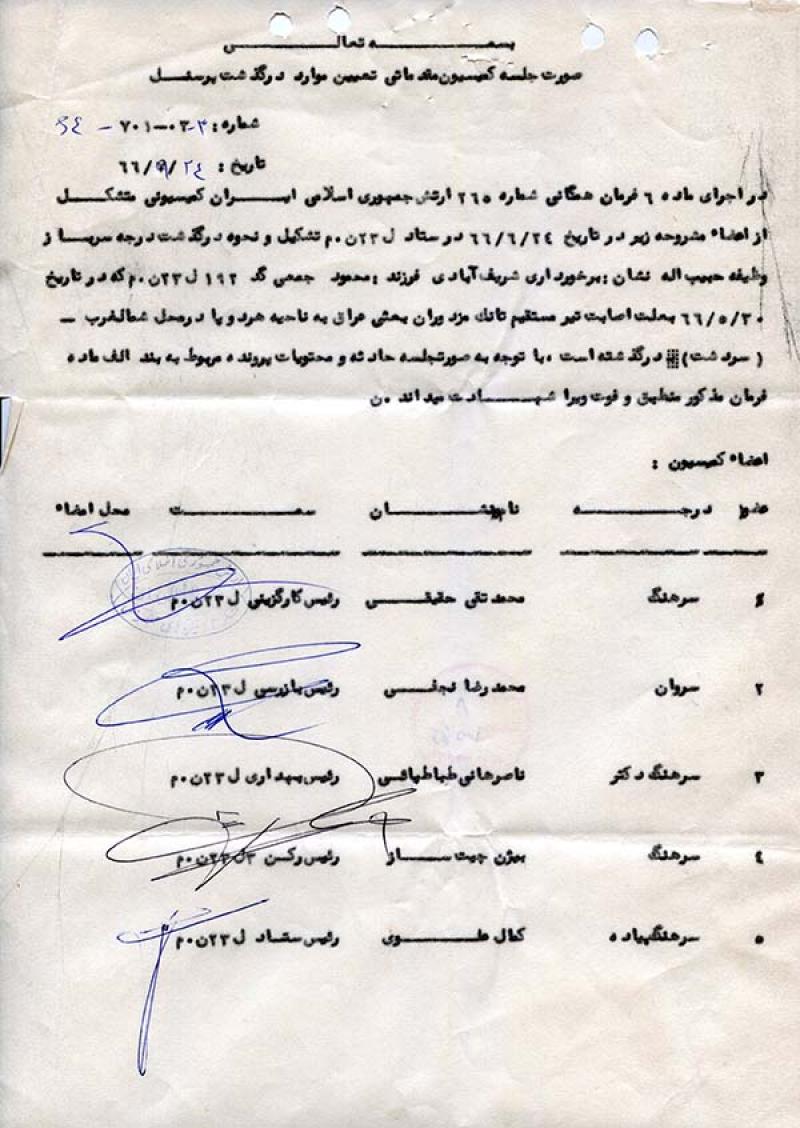 بسمه تعالی
صورت جلسه کمیسیون مقدماتی تعیین موارد درگذشت پرسنل
شماره : ۳-۰۳-۷۰۱ - ۳۴
تاریخ : ۲۴/۹/۶۶
در اجرای ماده ۶ فرمان همگانی شماره ۲۶۵ ارتش جمهوری اسلامی ایران کمیسیونی متشکل
از اعضاء مشروحه زیر در تاریخ ۶۶/۶/۲۴ در ستاد ل ۲۳ن۰م تشکیل و نحوه درگذشت درجه سرباز
وظیفه حبیب اله نشان : برخورداری شریف آبادی فرزند : محمود جمعی گد ۱۹۲ ل۲۳ن۰م که در تاریخ
۶۶/۵/۳۰ بعلت اصابت تیر مستقیم تانک مزدوران بعثی عراق به ناحیه هر دو پا در محل شمالغرب -
( سردشت ) درگذشته است ۰ با توجه به صورتجلسه حادثه و محتویات پرونده مربوط به بند الف ماده
فرمان مذکور منطبق و فوت ویرا شهادت میداند ۰ن
اعضاء کمیسیون :
عضو درجه نام نشان سمت محل امضاء
سرهنگ محمد تقی حقیقی رئیس کارگزینی ل ۲۳ن۰م
۲ سروان محمد رضا نجفی رئیس بازرسی ل ۲۳ن۰م
۳ سرهنگ دکتر ناصر هانی طباطبائی رئیس بهداری ل ۲۳ن۰م
۴ سرهنگ بیژن چیت ساز رئیس رکن ۳ل ۲۳ن۰م
۵ سرهنگ پیاده کمال علوی رئیس ستاد ل ۲۳ن۰م